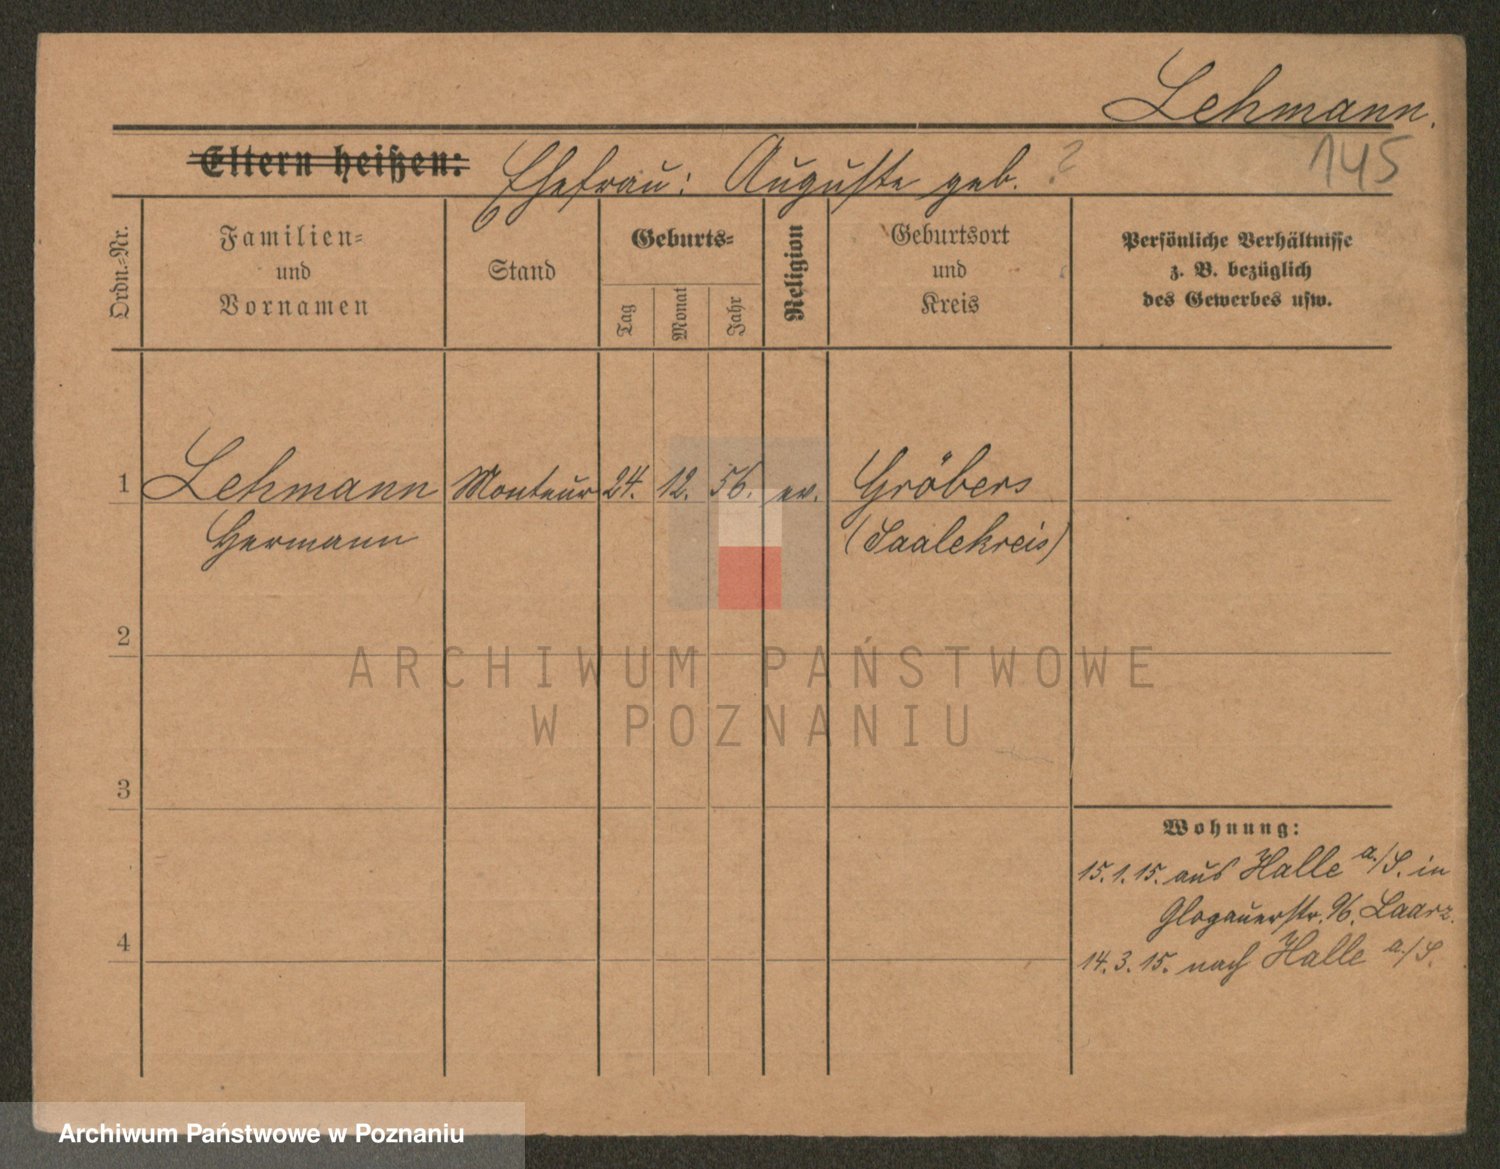 Lehmann.
145
Eltern heißen: Ehefrau: Auguste geb. ?
Ordn.-Nr.
Familien-
und
Vornamen
Stand
Geburts-
Tag
Monat
Jahr
Religion
Geburtsort
und
Kreis
Persönliche Verhältnisse
z. B. bezüglich
des Gewerbes usw.
1 Lehmann Monteur 24. 12. 56. ev. Gröbers
Hermann (Saalekreis)
2
3
4
Wohnung:
15.1.15. aus Halle a./S. in
Glogauerstr. 96. Laarz.
14.3.15. nach Halle a./S.
ARCHIWUM PAŃSTWOWE
W POZNANIU
Archiwum Państwowe w Poznaniu